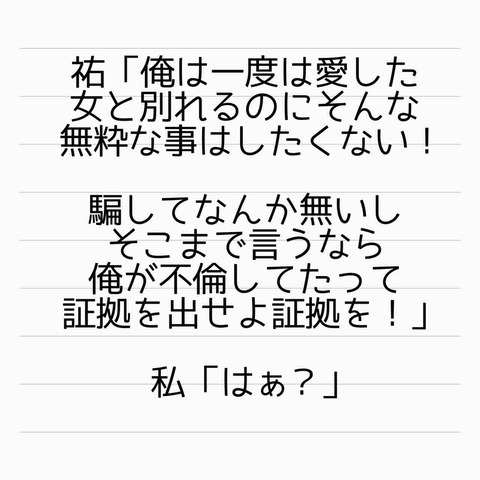 祐「俺は一度は愛した
女と別れるのにそんな
無粋な事はしたくない！
騙してなんか無いし
そこまで言うなら
俺が不倫してたって
証拠を出せよ証拠を！」
私「はぁ？」